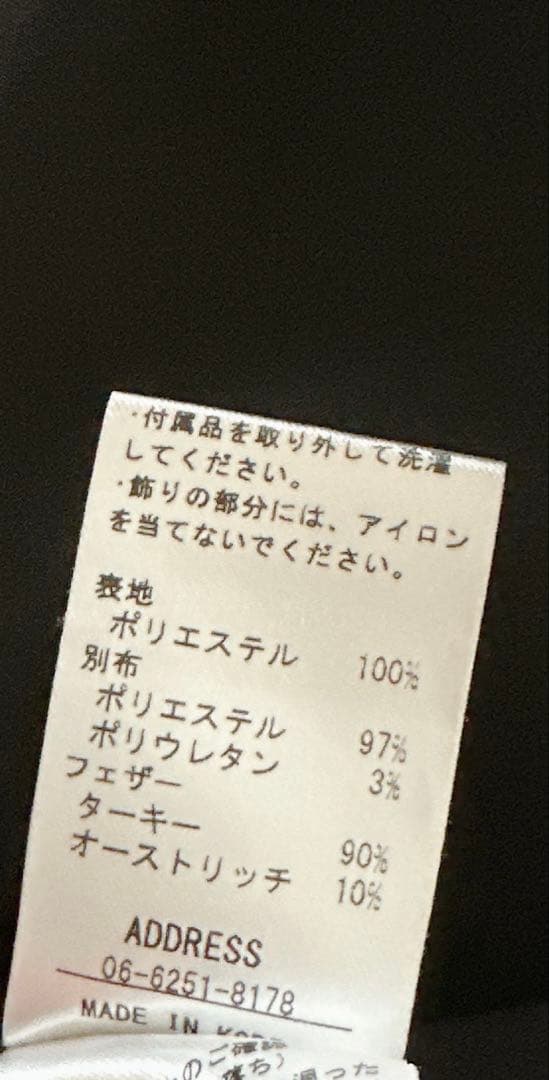 ・付属品を取り外して洗濯
してください。
・飾りの部分には、アイロン
を当てないでください。
表地
ポリエステル 100%
別布
ポリエステル 97%
ポリウレタン 3%
フェザー
ターキー 90%
オーストリッチ 10%
ADDRESS
06-6251-8178
MADE IN
のご確認
落ち）
湿った